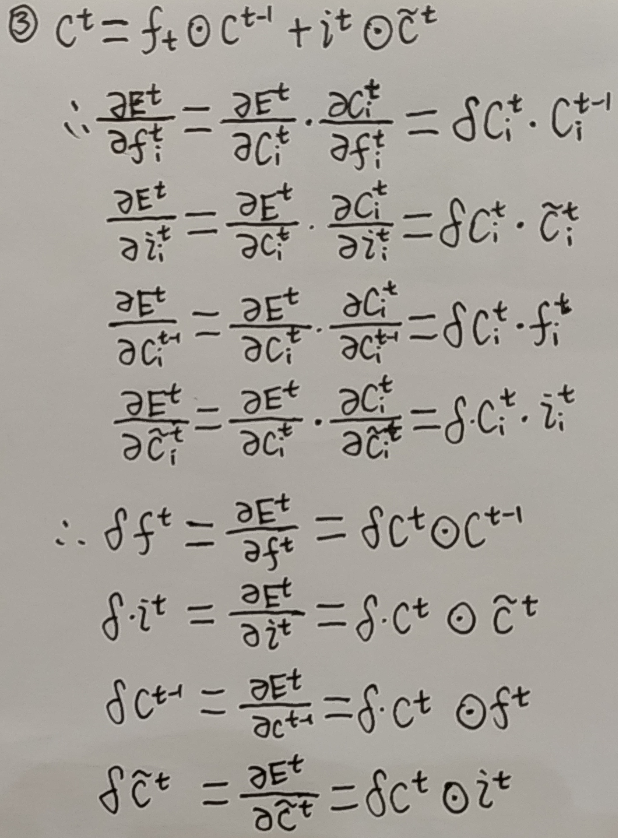 ③ C^t = f_t ⊙ C^{t-1} + i^t ⊙ c̃^t
∴ ∂E^t/∂f_i^t = ∂E^t/∂C_i^t · ∂C_i^t/∂f_i^t = δC_i^t · C_i^{t-1}
∂E^t/∂i_i^t = ∂E^t/∂C_i^t · ∂C_i^t/∂i_i^t = δC_i^t · c̃_i^t
∂E^t/∂C_i^{t-1} = ∂E^t/∂C_i^t · ∂C_i^t/∂C_i^{t-1} = δC_i^t · f_i^t
∂E^t/∂c̃_i^t = ∂E^t/∂C_i^t · ∂C_i^t/∂c̃_i^t = δ·C_i^t · i_i^t
∴ δf^t = ∂E^t/∂f^t = δC^t ⊙ C^{t-1}
δ·i^t = ∂E^t/∂i^t = δ·C^t ⊙ c̃^t
δC^{t-1} = ∂E^t/∂C^{t-1} = δ·C^t ⊙ f^t
δc̃^t = ∂E^t/∂c̃^t = δC^t ⊙ i^t